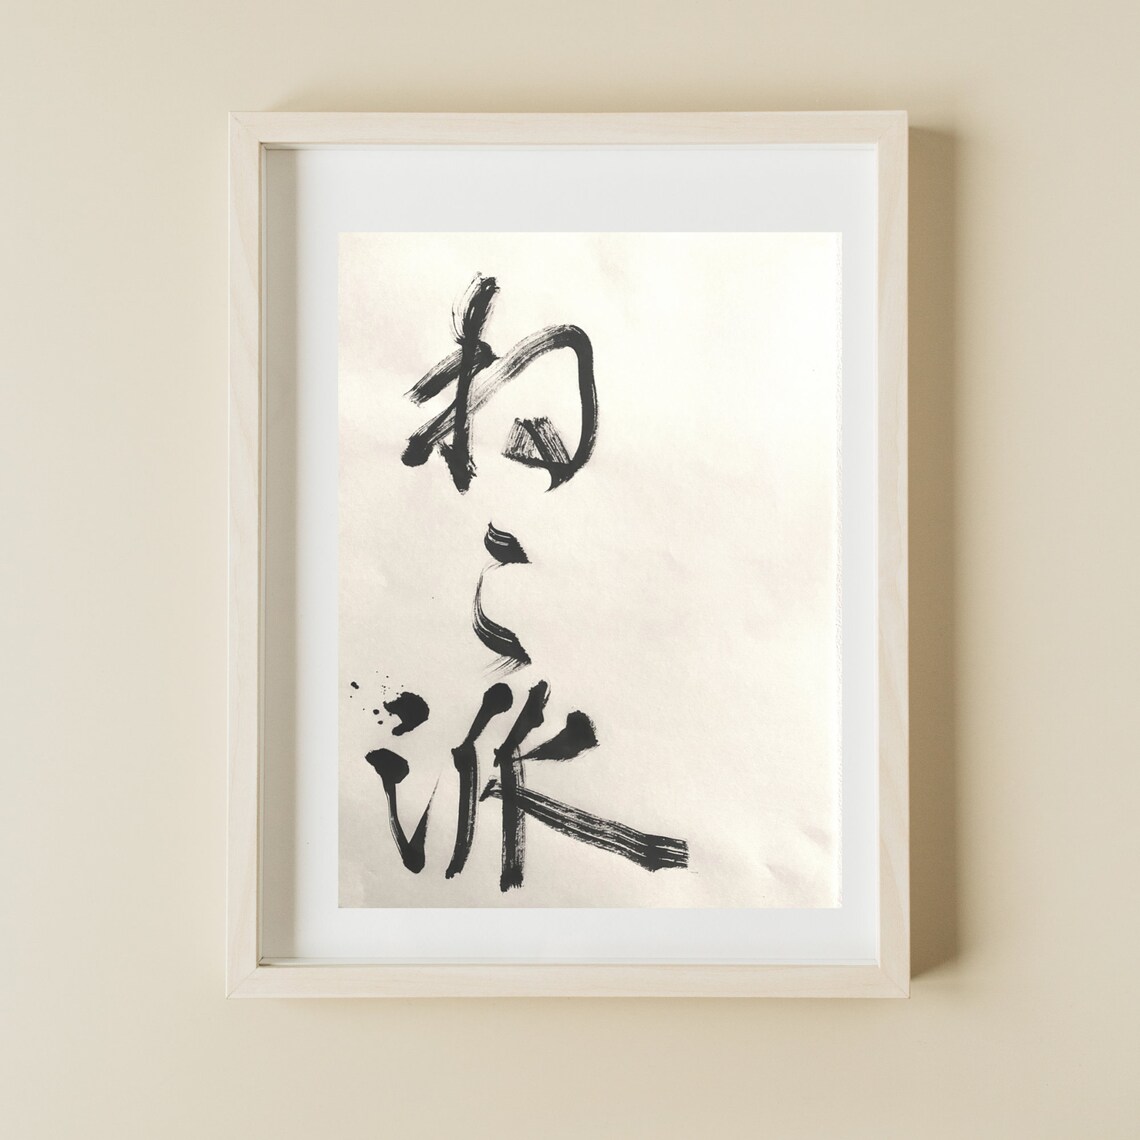 ねこ派